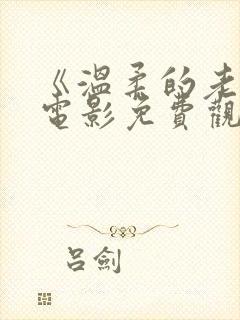 《溫柔的老
電影免費觀
呂劍